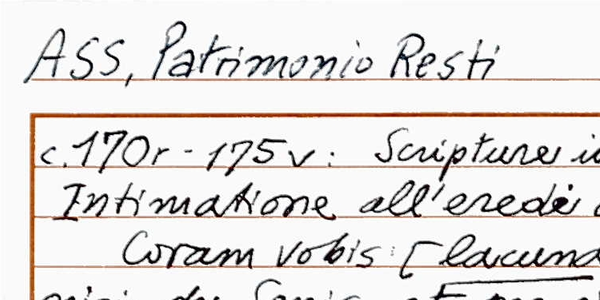 ASS, Patrimonio Resti
c. 170r - 175v: Scripturei
Intimatione all'erede
Coram vobis: [lacuna